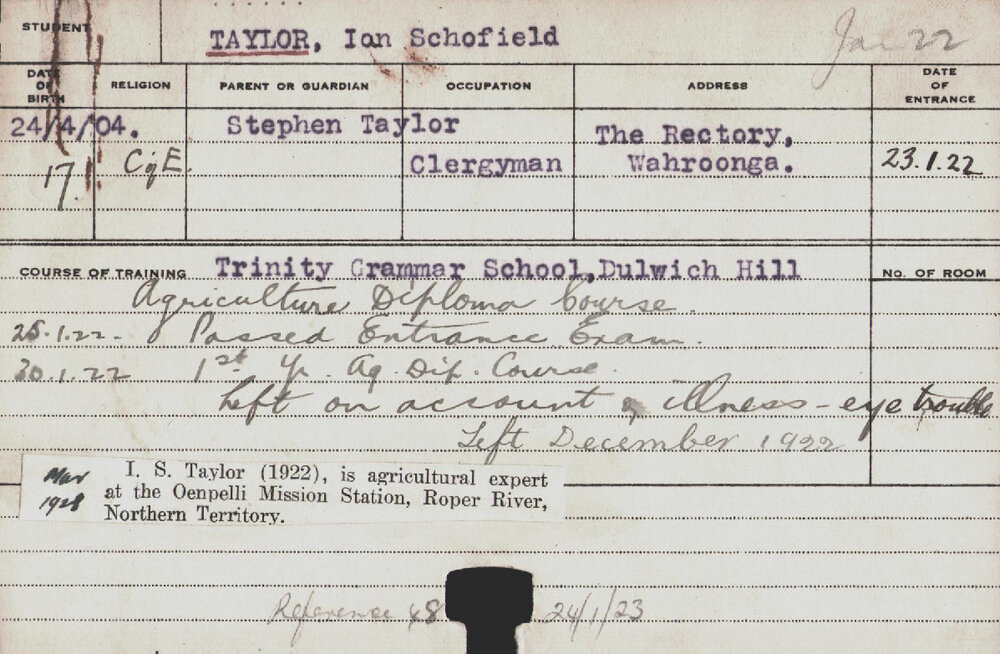 STUDENT TAYLOR, Ian Schofield Jan 22
DATE OF BIRTH RELIGION PARENT OR GUARDIAN OCCUPATION ADDRESS DATE OF ENTRANCE
24/4/04. Stephen Taylor The Rectory,
17 C of E. Clergyman Wahroonga. 23.1.22
COURSE OF TRAINING Trinity Grammar School, Dulwich Hill No. OF ROOM
Agriculture Diploma Course.
25.1.22. Passed Entrance Exam.
30.1.22 1st Yr. Ag. Dip. Course.
Left on account of illness - eye trouble
Left December 1922
Mar 1928
I. S. Taylor (1922), is agricultural expert
at the Oenpelli Mission Station, Roper River,
Northern Territory.
Reference 48 24/1/23